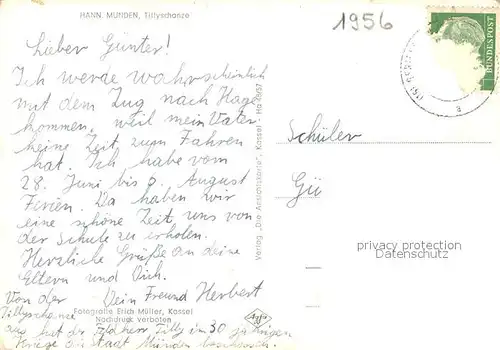 HANN. MÜNDEN, Tillyschanze
1956
BUNDESPOST
Lieber Günter!
Ich werde wahrscheinlich
mit dem Zug nach Hage
kommen, weil mein Vater
keine Zeit zum Fahren
hat. Ich habe vom
28. Juni bis 6. August
Ferien. Da haben wir
eine schöne Zeit uns von
der Schule zu erholen.
Herzliche Grüße an deine
Eltern und Dich.
Dein Freund Herbert
Von der
Tillyschanze
aus hat der Feldherr Tilly im 30 jährigen
Kriege die Stadt Münden beschossen.
Fotografie Erich Müller, Kassel
Nachdruck verboten
Agfa
Verlag „Die Ansichtskarte", Kassel Ha 49/57
Schüler
Gü
privacy protection
Datenschutz
a